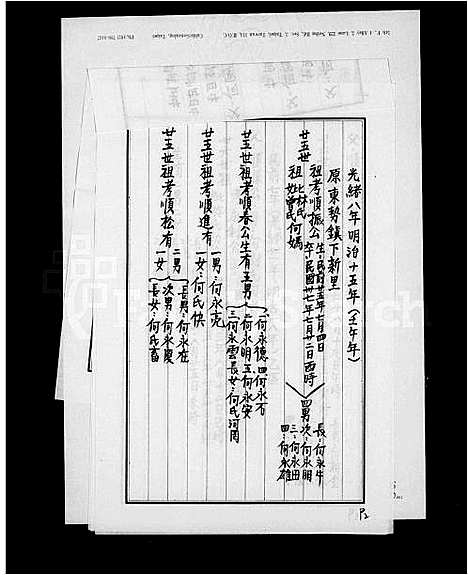 光緒八年明治十五年（壬午年）
原東勢鎮下新里
廿五世 祖考順振公 生：民前廿五年七月四日
卒：民國卅七年七月廿二日酉時
祖妣林氏
妣曾氏何媽
四男
長：何永牛
次：何永明
三：何永田
四：何永雄
廿五世祖考順春公生有五男
一何永德 四何永石
二何永明 五何永安
三何永雲 長女：何氏
廿五世祖考順進有
一男：何永亮
一女：何氏快
廿五世祖考順松有
二男
一女
長男：何永在
次男：何永慶
長女：何氏畜
P2